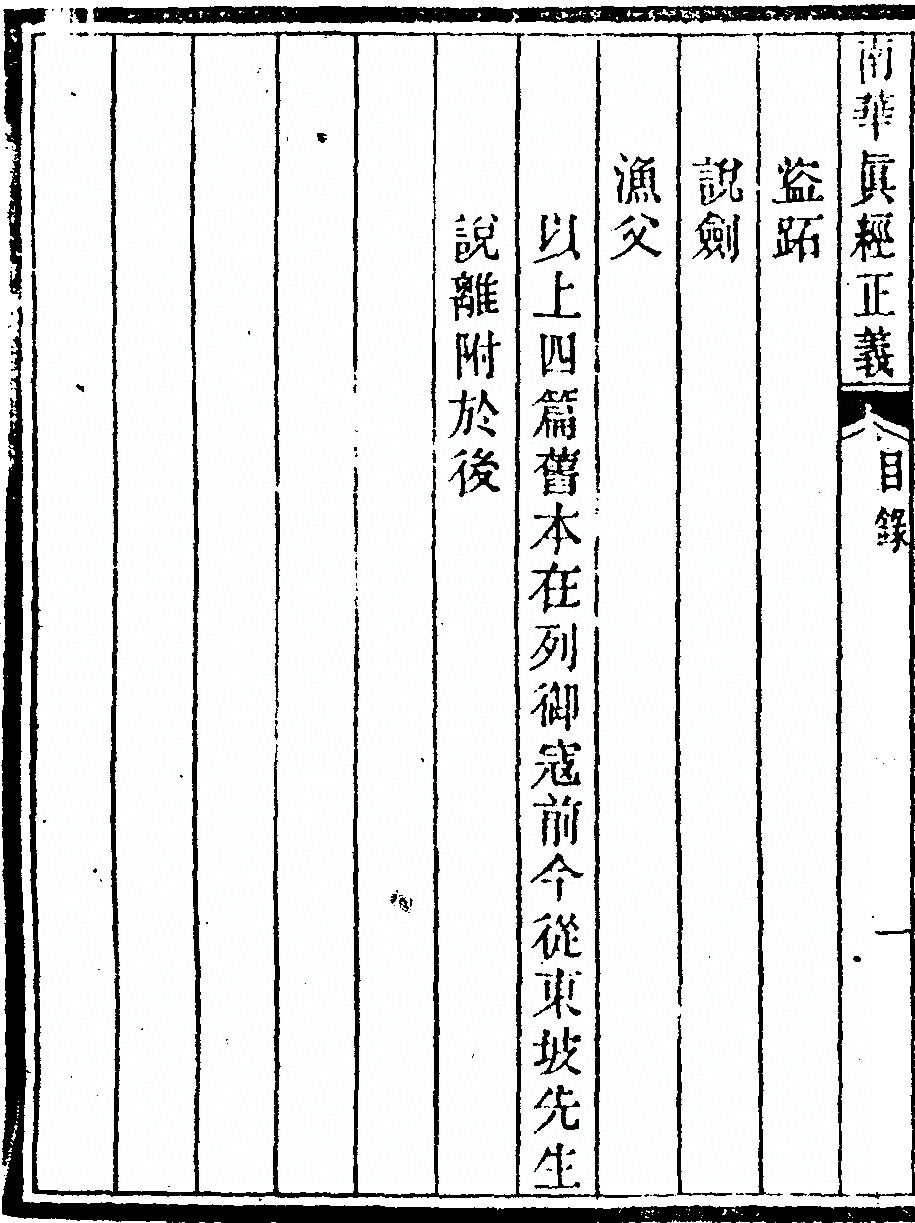 南華眞經正義 目錄 一
盜跖
說劍
漁父
以上四篇舊本在列御寇前今從東坡先生
說離附於後